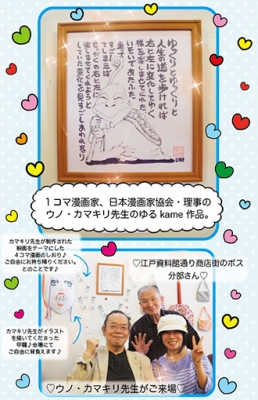 ゆっくりとゆっくりと
人生の道を歩ければ
右と左に変化してゆく
１コマ漫画家、日本漫画家協会・理事の
ウノ・カマキリ先生のゆる kame 作品。
カマキリ先生が制作された
映画をテーマにした
４コマ漫画のしおり♪
ご自由にお持ち帰りください。
とのことです♪
♡江戸資料館通り商店街のボス
分部さん♡
カマキリ先生がイラスト
を描いてくださった
甲羅♪会場にて
ご自由に背負えます♪
♡ウノ・カマキリ先生がご来場♡